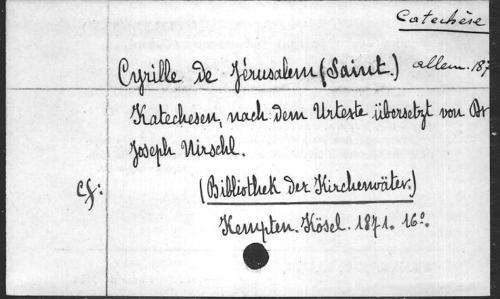 Catechèse
Cyrille de Jérusalem (Saint.) allem. 187
Katechesen, nach dem Urtexte übersetzt von Dr
Joseph Nirschl.
cf: (Bibliothek der Kirchenväter.)
Kempten. Kösel. 1871. 16º.